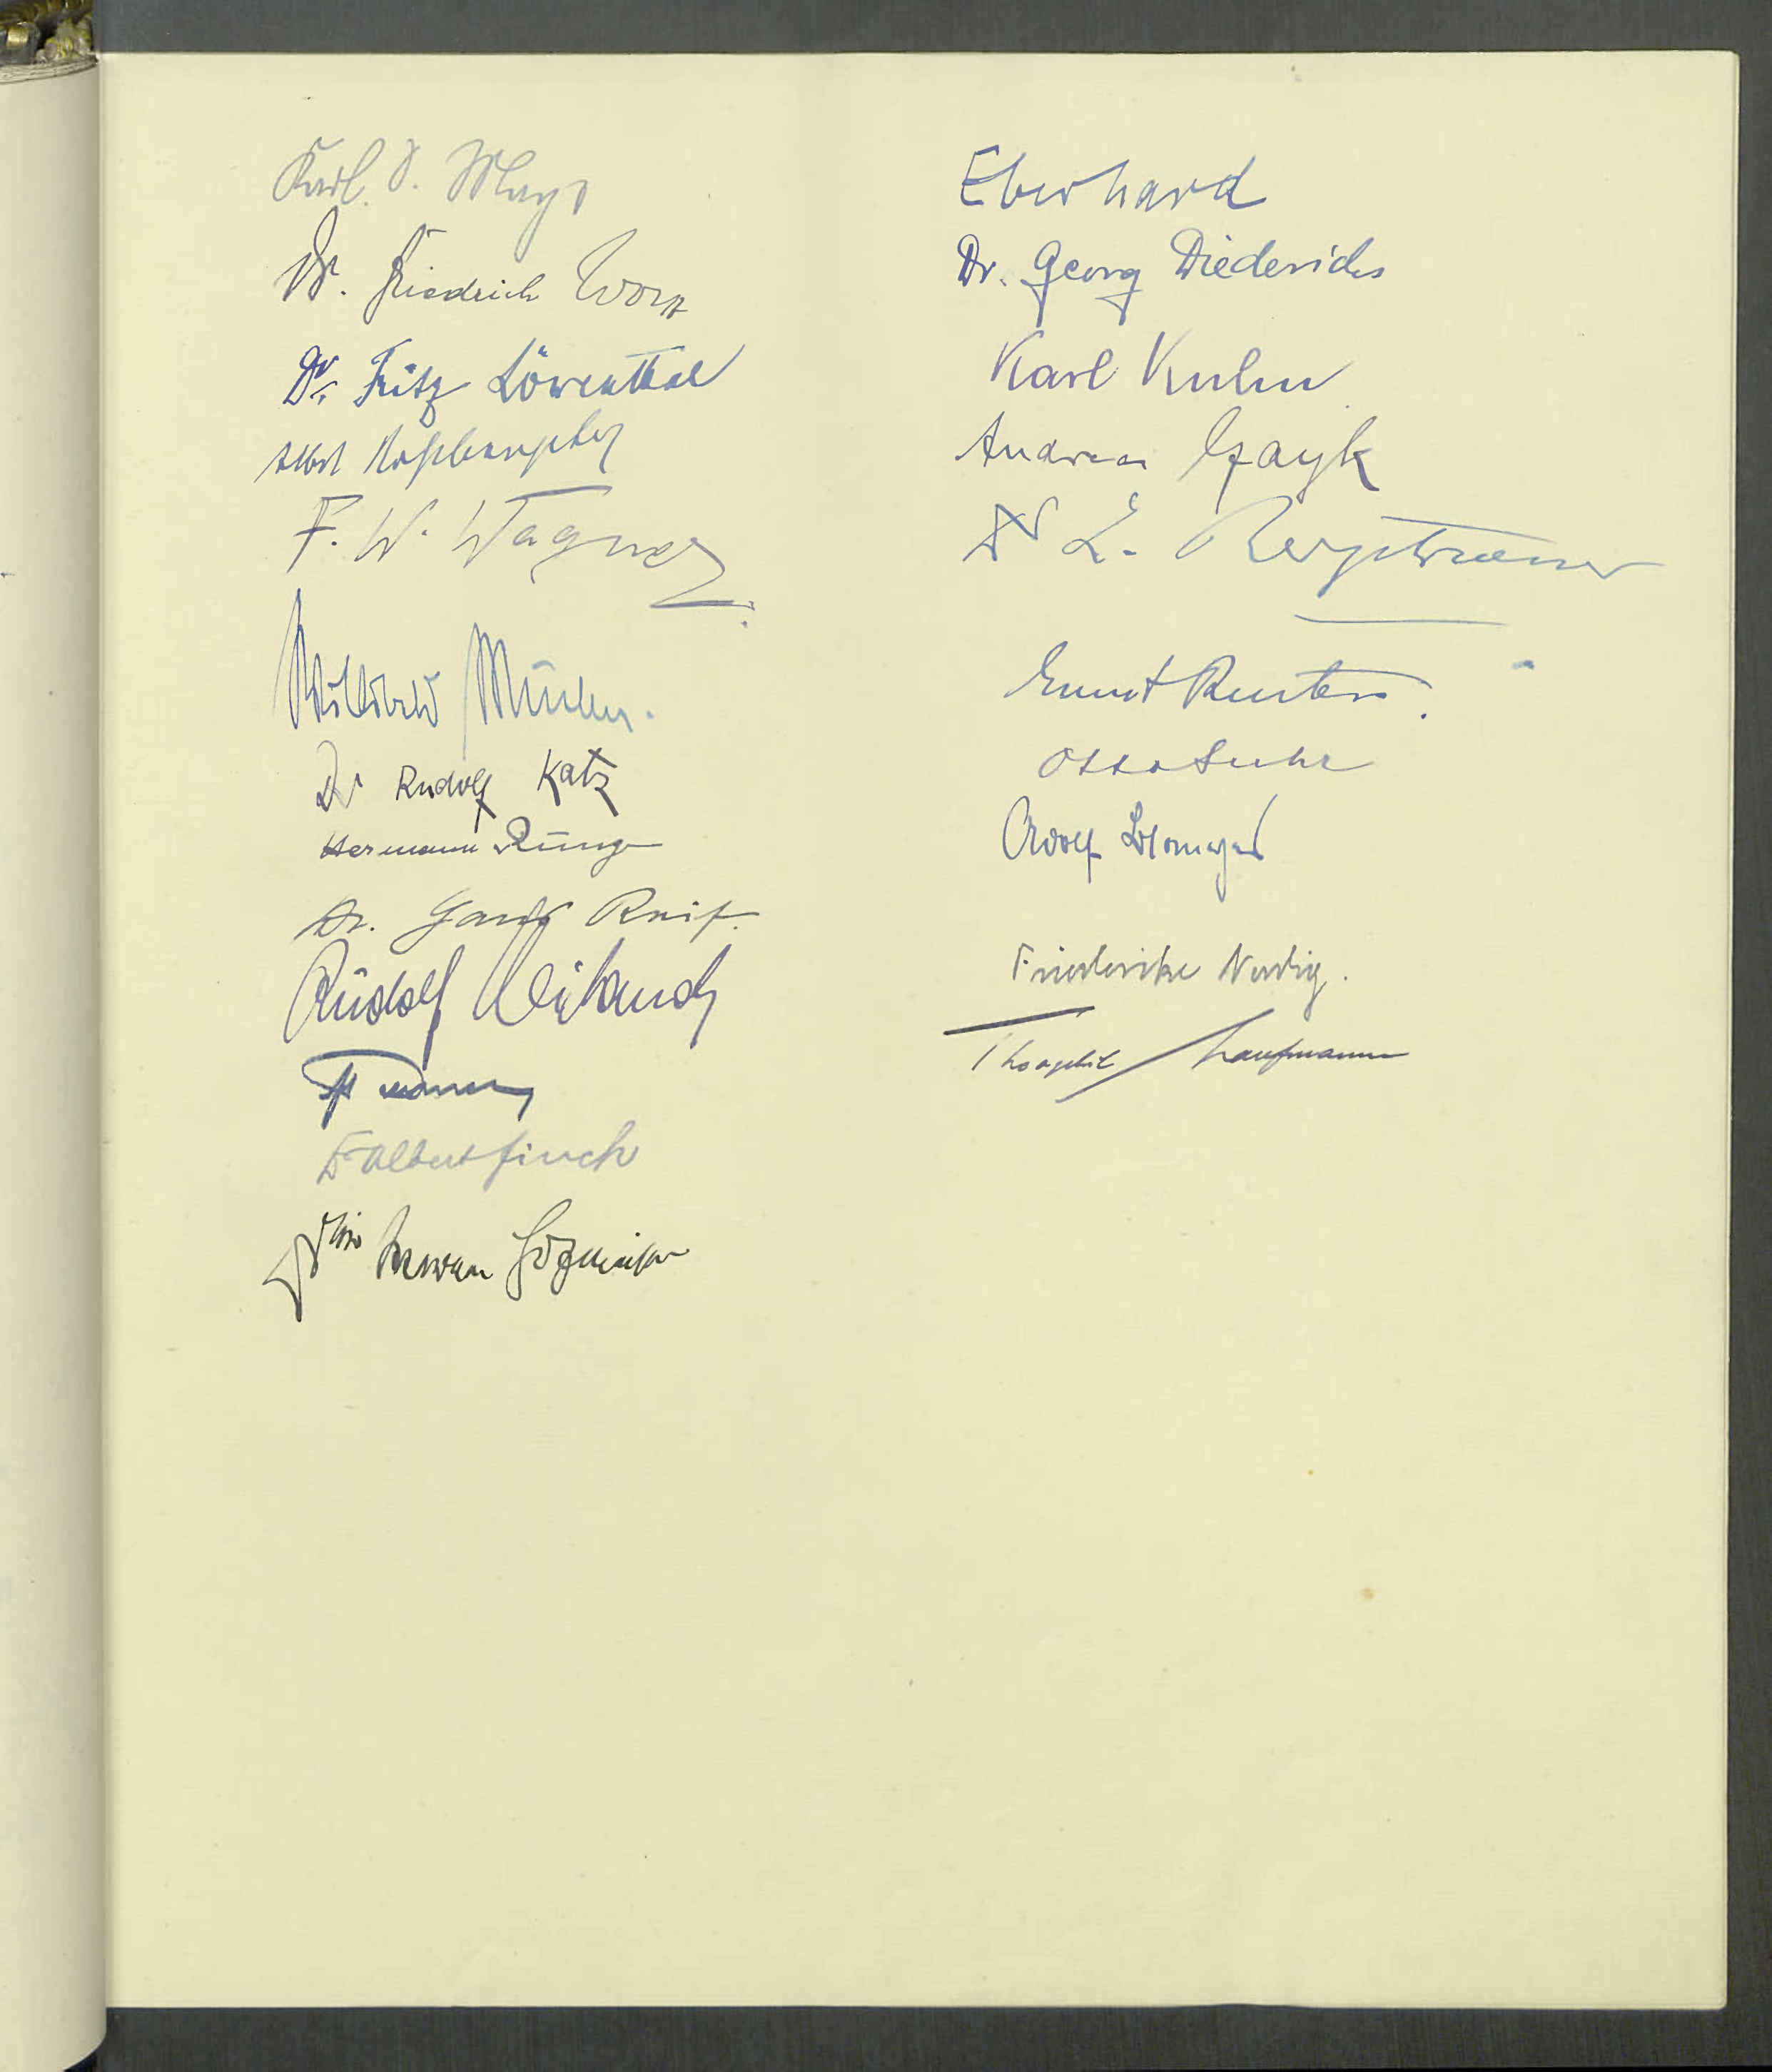 Karl S. Mayr
Dr. Friedrich Wolff
Dr. Fritz Löwenthal
Albert Roßhaupter
F. W. Wagner
Willibald Mücke.
Dr Rudolf Katz
Hermann Runge
Dr. Hans Reif.
Rudolf
Dr Albert Finck
Dr. Hermann
Eberhard
Dr. Georg Diederichs
Karl Kuhn
Andreas Gayk
Dr L. Bergsträsser
Ernst Reuter.
Otto Suhr
Adolf Blomeyer
Friederike Nadig.
Theophil Kaufmann